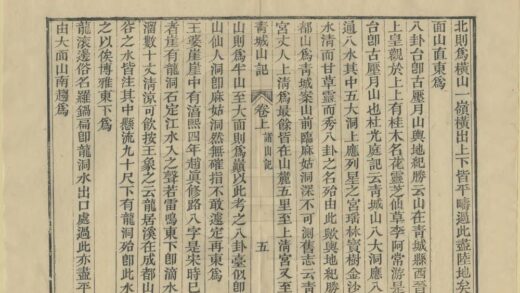 北則爲横山一嶺橫出上下皆平疇過此盡陸地矣
面山直東爲
八卦台卽古壓月山輿地紀勝云山在青城縣西晉
上皇觀於上上有桂木名花靈芝仙草李阿常游是
台卽古壓月山也杜光庭記云青城山八大洞應八
通八水其中五大洞上應列星之宮瑤林寶樹金沙
水清而甘草靈而秀八卦之名殆由此歟輿地紀勝
都山爲青城案山前臨麻姑洞深不可測舊志云青
宮丈人上清爲最餘皆在山麓五里至上清宮又至
青城山記
卷上
諸山記
五
山則爲牛山至大面則爲巔以此考之八卦臺似卽
山仙人洞卽麻姑洞然無確指不敢遽定再東爲
王婆崖崖中有淳熙四年趙眞修路八字是宋時巳
者崖有龍洞石定江水入之聲若雷鳴東下卽滴水
溜數十丈清涼可飲按王象之云龍居溪在成都山
谷之水皆注其中懸流九十尺下有龍洞殆卽此水
之以俟博雅東下爲
龍滾邊俗名羅鍋扁卽龍洞水出口處過此亦盡平
由大面山南趨爲